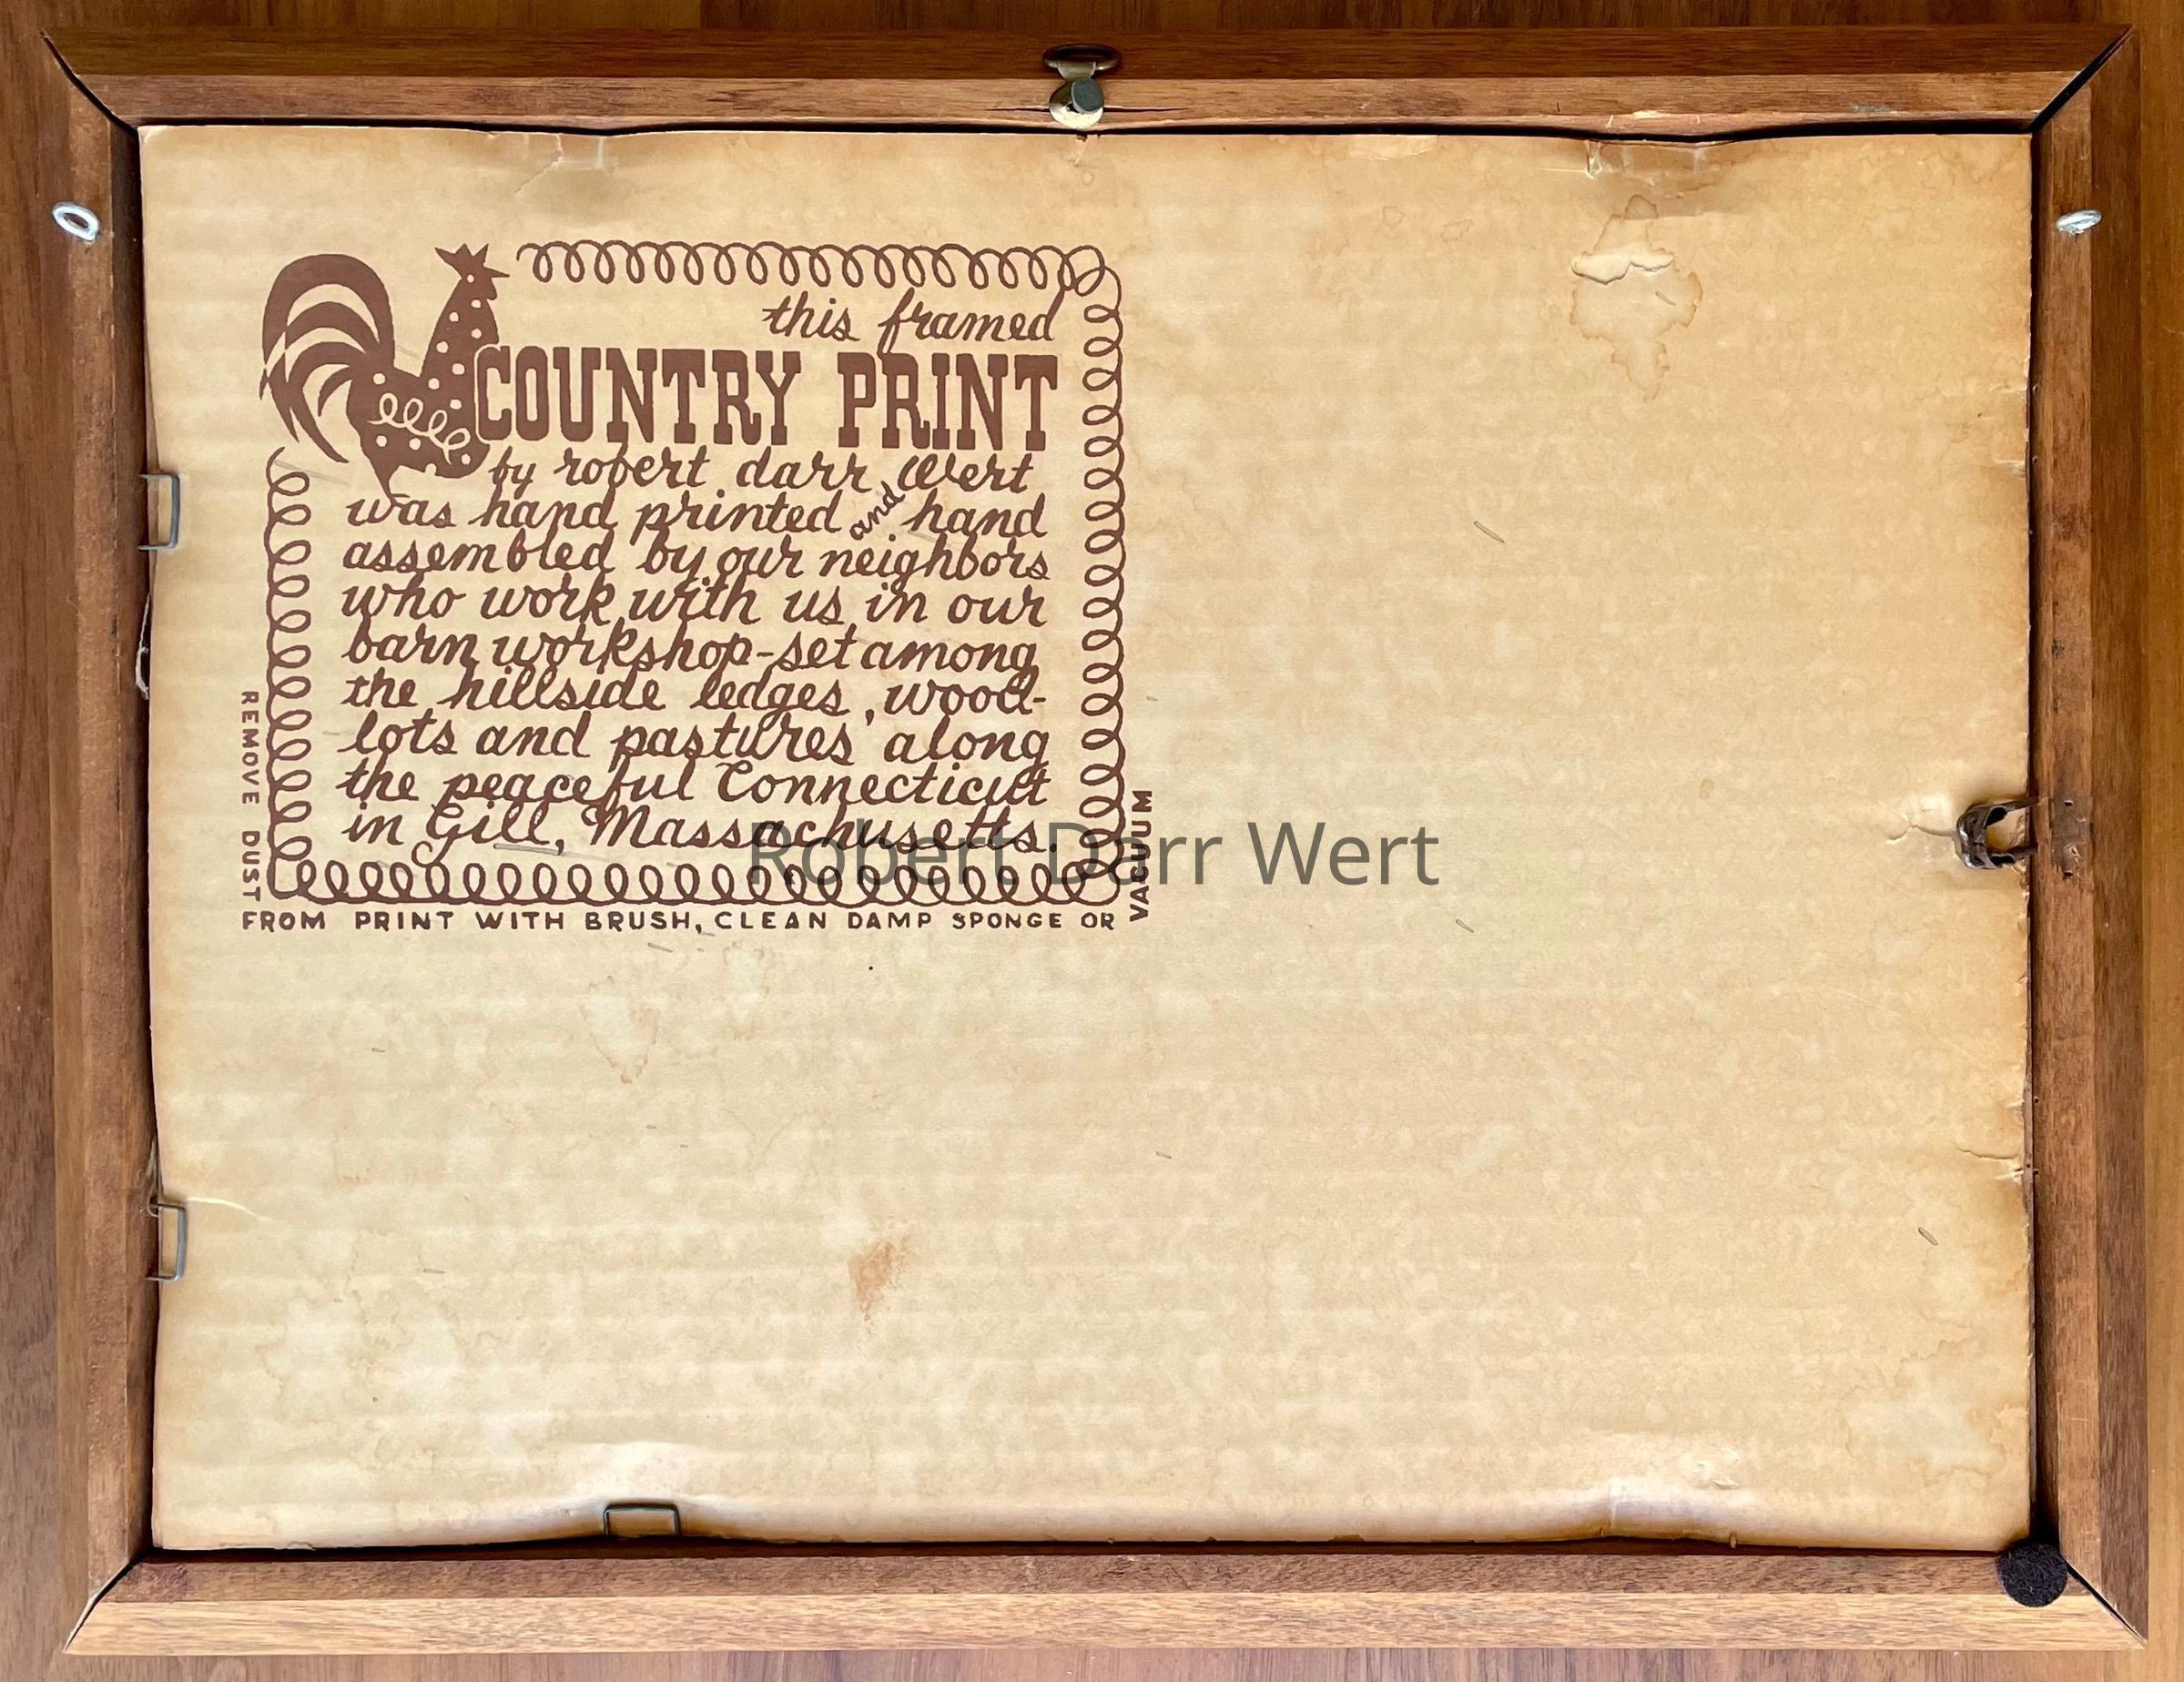 this framed
COUNTRY PRINT
by robert darr Wert
was hand printed and hand
assembled by our neighbors
who work with us in our
barn workshop-set among
the hillside ledges, wood-
lots and pastures along
the peaceful Connecticut
in Gill, Massachusetts.
REMOVE DUST
FROM PRINT WITH BRUSH, CLEAN DAMP SPONGE OR
VACUUM
Robert Darr Wert